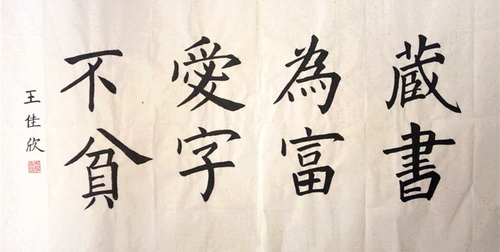 蔵書
為富
愛字
不貧
王佳欣